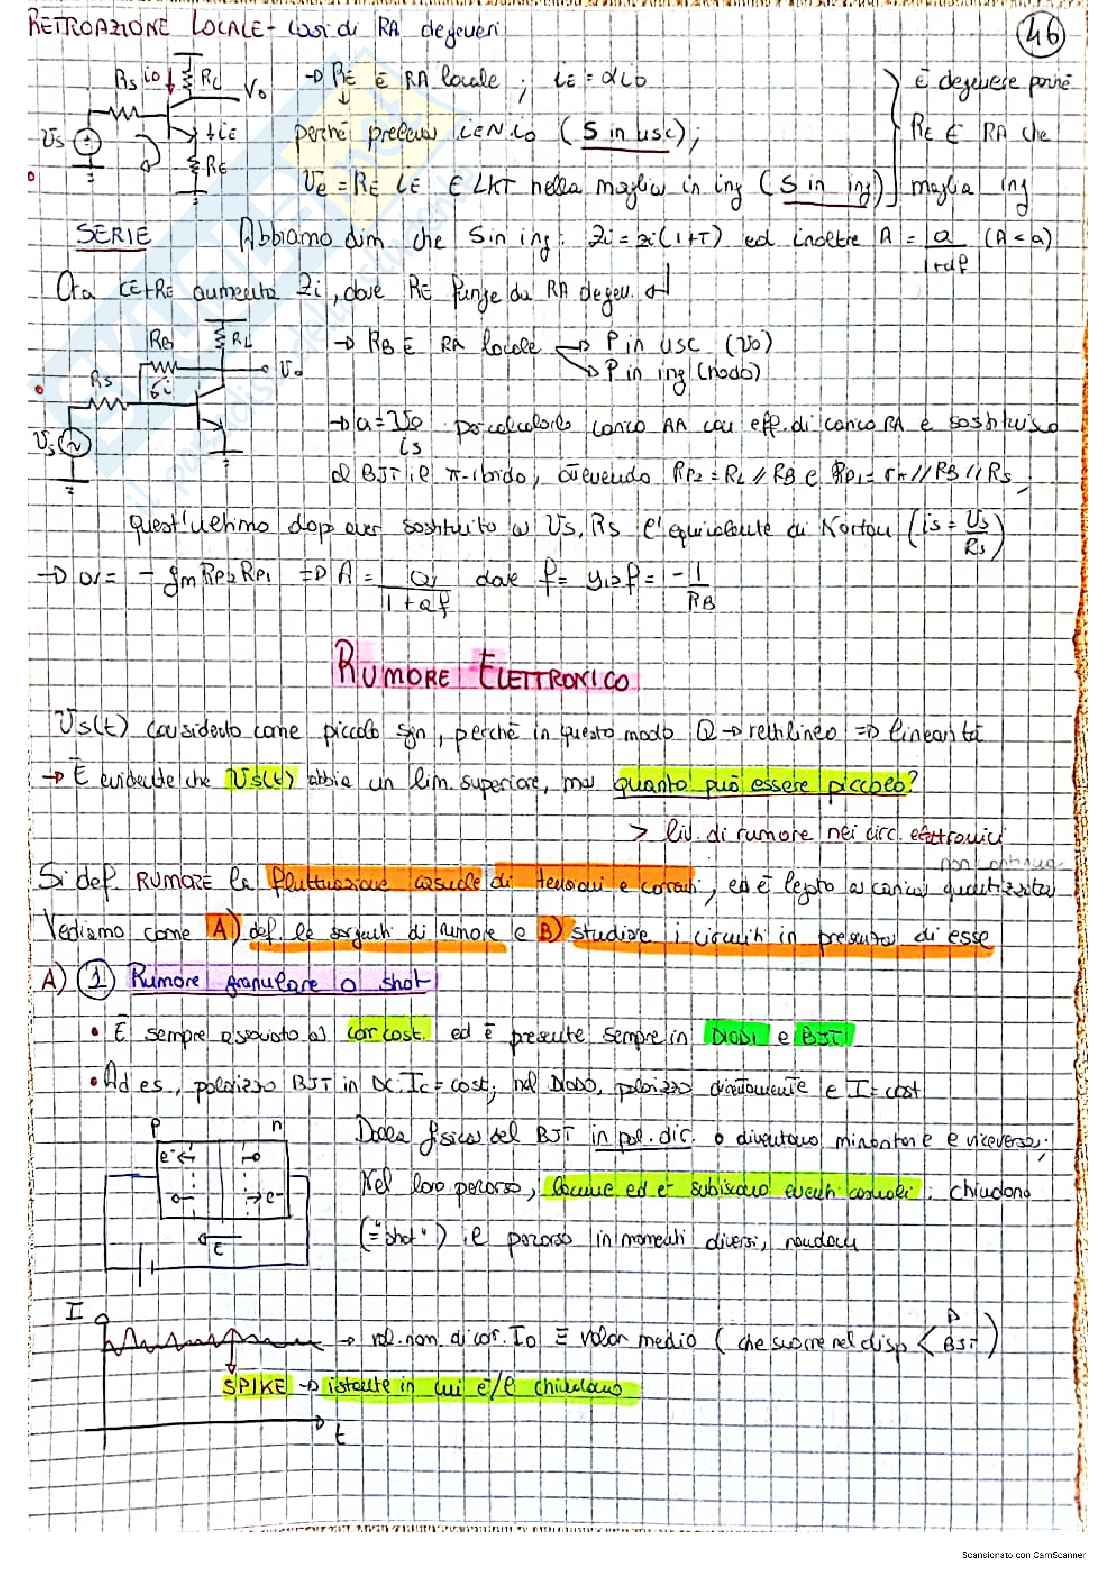 RETROAZIONE LOCALE - casi di RA degeneri
46
Rs io RL Vo → RE È RA locale ; iE = αio
È degenere perché
Vs ↓iE RE perché preleva iE≈io (S in usc);
RE È RA che
Ve = RE iE È LKT nella maglia in ing (S in ing)
maglia ing
SERIE Abbiamo dim che S in ing: Zi = zi(1+T) ed inoltre A = a/(1+af) (A<a)
Ora CE+RE aumenta Zi, dove RE funge da RA degen.
RB RL → RB È RA locale → P in usc (Vo)
Rs Vo → P in ing (nodo)
Vs → a = Vo/is per calcolarlo carico AA con eff. di carico RA e sostituisco
il BJT il π-ibrido, ottenendo RP2 = RL // RB e RP1 = rπ // RB // Rs,
quest'ultimo dopo aver sostituito a Vs, Rs l'equivalente di Norton (is = Vs/Rs)
→ a = - gm RP2 RP1 ⇒ A = a/(1+af) dove f = y12f = -1/RB
RUMORE ELETTRONICO
Vs(t) considerato come piccolo sgn, perché in questo modo Q → rettilineo ⇒ linearità
→ È evidente che Vs(t) abbia un lim. superiore, ma quanto può essere piccolo?
> liv. di rumore nei circ. elettronici
non continua
Si def. RUMORE la fluttuazione casuale di tensioni e correnti, ed è legato a carica quantizzata
Vediamo come A) def. le sorgenti di rumore e B) studiare i circuiti in presenza di esse
A) 1 Rumore granulare o shot
• È sempre associato a cor cost. ed è presente sempre in DIODI e BJT
• Ad es, polarizzo BJT in DC: Ic = cost; nel DIODO, polarizzo direttamente e I = cost
p n Dalla fisica del BJT in pol. dir. o diventano minoritarie e viceversa;
e- Nel loro percorso, lacune ed e- subiscono eventi casuali: chiudono
e- (="shot") il percorso in momenti diversi, random
E
I → val. nom. di cor. ID ≡ valor medio (che scorre nel disp < D BJT)
SPIKE → istante in cui e-/l chiudono
t
Scansionato con CamScanner